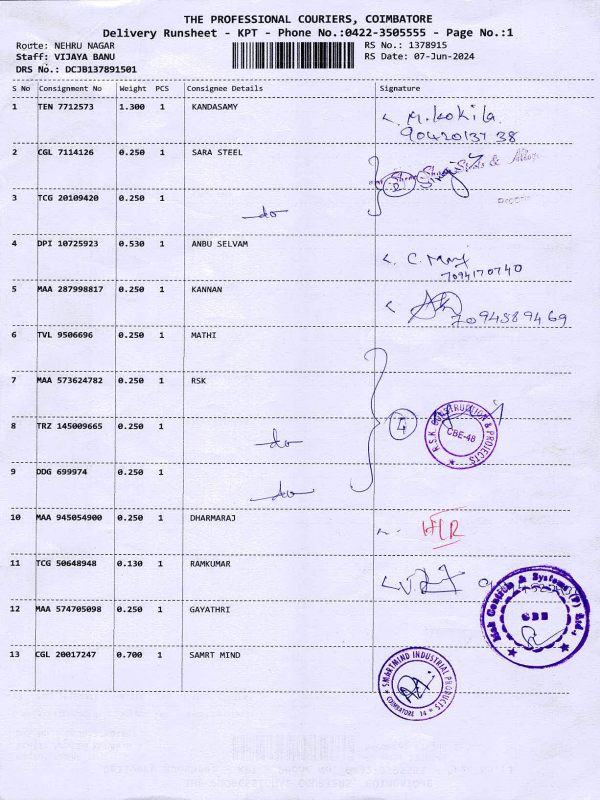 THE PROFESSIONAL COURIERS, COIMBATORE
Delivery Runsheet - KPT - Phone No.:0422-3505555 - Page No.:1
Route: NEHRU NAGAR RS No.: 1378915
Staff: VIJAYA BANU RS Date: 07-Jun-2024
DRS No.: DCJB137891501
S No Consignment No Weight PCS Consignee Details Signature
1 TEN 7712573 1.300 1 KANDASAMY M. Kokila
9042013738
2 CGL 7114126 0.250 1 SARA STEEL
3 TCG 20109420 0.250 1
do
4 DPI 10725923 0.530 1 ANBU SELVAM C. Mani
7094170740
5 MAA 287998817 0.250 1 KANNAN
7094589469
6 TVL 9506696 0.250 1 MATHI
7 MAA 573624782 0.250 1 RSK
R.S.K. CONSTRUCTION & PROJECTS
CBE-48
8 TRZ 145009665 0.250 1 4
do
9 DDG 699974 0.250 1
do
10 MAA 945054900 0.250 1 DHARMARAJ
11 TCG 50648948 0.130 1 RAMKUMAR
12 MAA 574705098 0.250 1 GAYATHRI
13 CGL 20017247 0.700 1 SAMRT MIND
SMARTMIND INDUSTRIAL PRODUCTS
COIMBATORE 14